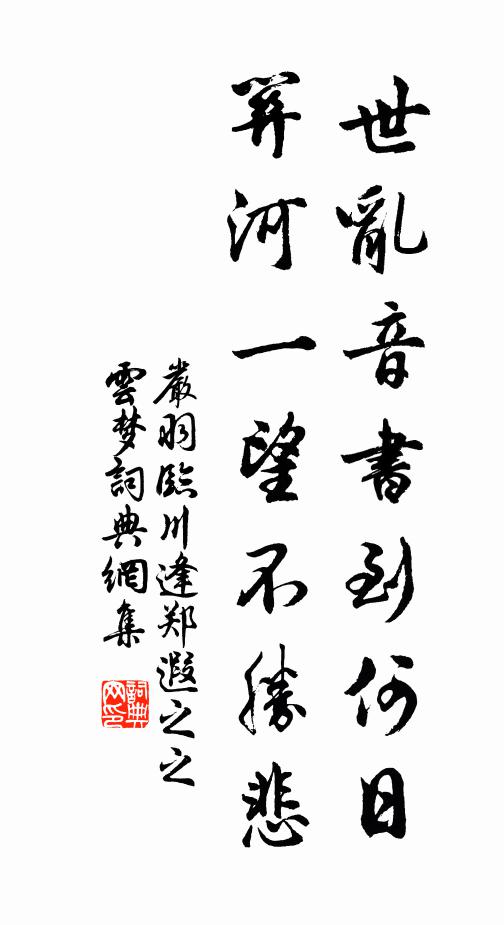 世亂音書到何日
關河一望不勝悲
嚴羽臨川逢郑遐之之
雲梦詞典網集
詞典
网印